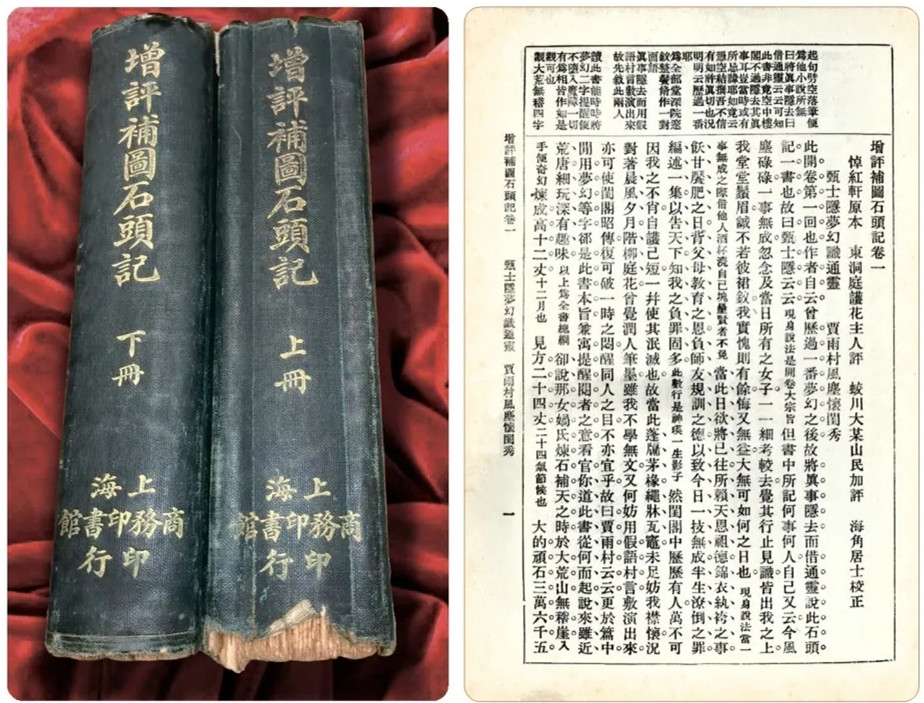 增評補圖石頭記
上冊
上海
商務印書館
印行
增評補圖石頭記
下冊
上海
商務印書館
印行
起句劈空落筆便
爲他小說所無
曰將眞事隱去曰
借通靈云云可知
此書非竟空中樓
閣不過隱去其眞
事耳豈當時或有
所忌諱耶如竟云
憑空結撰吾不信
有如許眞切也況
明明云歷過一番
耶
爲全部堂深院邃
作一對
面語
眞事隱去而用假
語村言敷演出來
故先敘此兩人
讀此書能時時將
夢幻二字提醒便
不墮入魔障一切
有爲相皆作如是
觀可也
觀大荒無稽四字
增評補圖石頭記卷一
悼紅軒原本 東洞庭護花主人評 蛟川大某山民加評 海角居士校正
甄士隱夢幻識通靈 賈雨村風塵懷閨秀
此開卷第一回也作者自云曾歷過一番夢幻之後故將眞事隱去而借通靈說此石頭
記一書也故曰甄士隱云云 現身說法是開卷大宗旨 但書中所記何事何人自己又云今風
塵碌碌一事無成忽念及當日所有之女子一一細考較去覺其行止見識皆出我之上
我堂堂鬚眉誠不若彼裙釵我實愧則有餘悔又無益大無可如何之日也 現身說法當一
事無成之際借他人酒杯澆自己塊壘賢者不免 當此日欲將已往所賴天恩祖德錦衣紈袴之事
飫甘饜肥之日背父母教育之恩負師友規訓之德以致今日一技無成半生潦倒之罪
編述一集以告天下知我之負罪固多 此數行是神瑛一生影子 然閨閣中歷歷有人萬不可
因我之不肖自護己短一并使其泯滅也故當此蓬牖茅椽繩牀瓦竈未足妨我襟懷況
對著晨風夕月階柳庭花曾覺潤人筆墨雖我不學無文又何妨用假語村言敷演出來
亦可使閨閣昭傳復可破一時之悶醒同人之目不亦宜乎故曰賈雨村云云更於篇中
間用夢幻等字卻是此書本旨兼寓提醒閱者之意看官你道此書從何而起說來雖近
荒唐細玩深有趣味 以上爲全書總綱 卻說那女媧氏煉石補天之時於大荒山無稽崖入
手便奇幻 煉成高十二丈 十二月也 見方二十四丈 二十四氣節候也 大的頑石三萬六千五
增評補圖石頭記卷一 甄士隱夢幻識通靈 賈雨村風塵懷閨秀 一